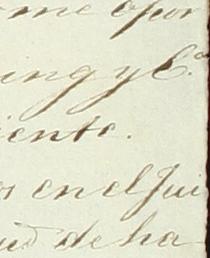 me opor
ing y C.ª
iente.
os en el Jui
ud de ha